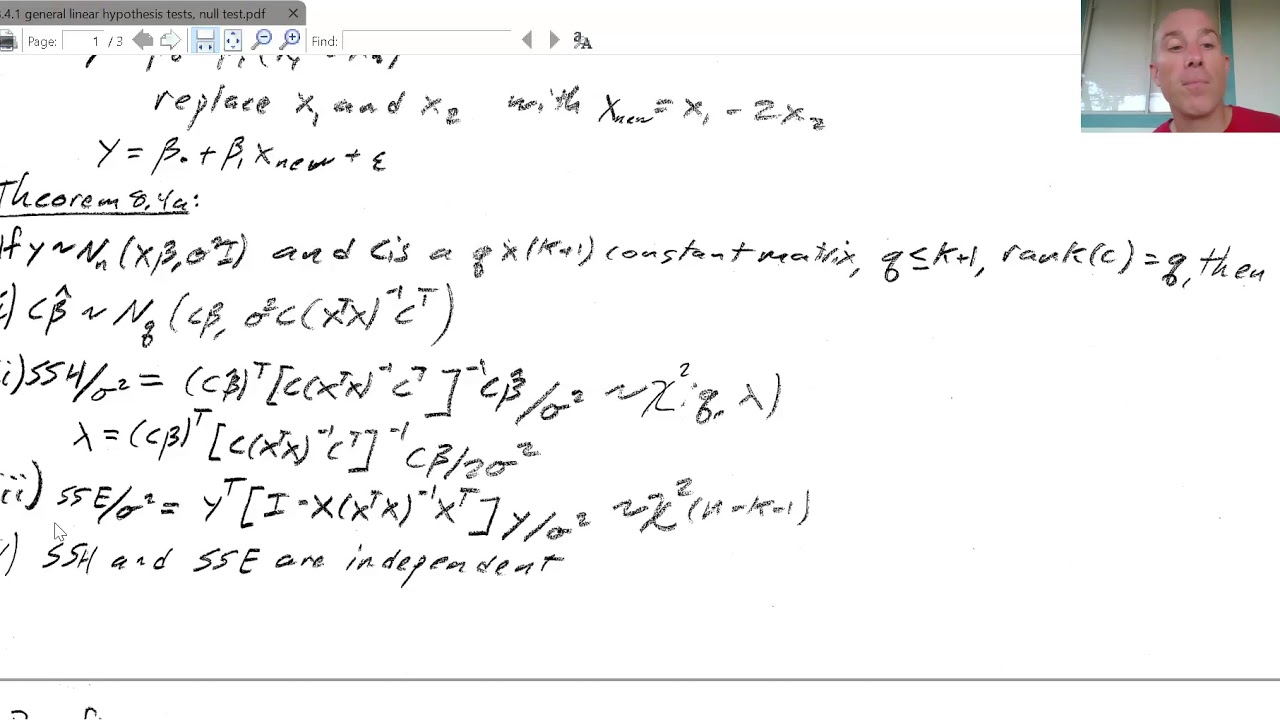 3.4.1 general linear hypothesis tests, null test.pdf ×
Page: 1 / 3 Find:
replace x₁ and x₂ with Xnew = x₁ - 2x₂
Y = β₀ + β₁ Xnew + ε
Theorem 8.4a:
If y ~ Nₙ(Xβ, σ²I) and C is a q x (k+1) constant matrix, q ≤ k+1, rank(C) = q, then
i) Cβ̂ ~ N_q (Cβ, σ²C(XᵀX)⁻¹Cᵀ)
ii) SSH/σ² = (Cβ̂)ᵀ[C(XᵀX)⁻¹Cᵀ]⁻¹Cβ̂/σ² ~ χ²(q, λ)
λ = (Cβ)ᵀ[C(XᵀX)⁻¹Cᵀ]⁻¹Cβ/2σ²
iii) SSE/σ² = Yᵀ[I - X(XᵀX)⁻¹Xᵀ]y/σ² ~ χ²(n-k-1)
) SSH and SSE are independent